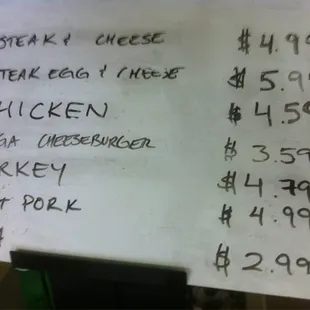 STEAK & CHEESE $4.99
TEAK EGG & CHEESE $5.9
HICKEN $4.59
GA CHEESEBURGER $3.59
RKEY $4.79
T PORK $4.99
$2.99